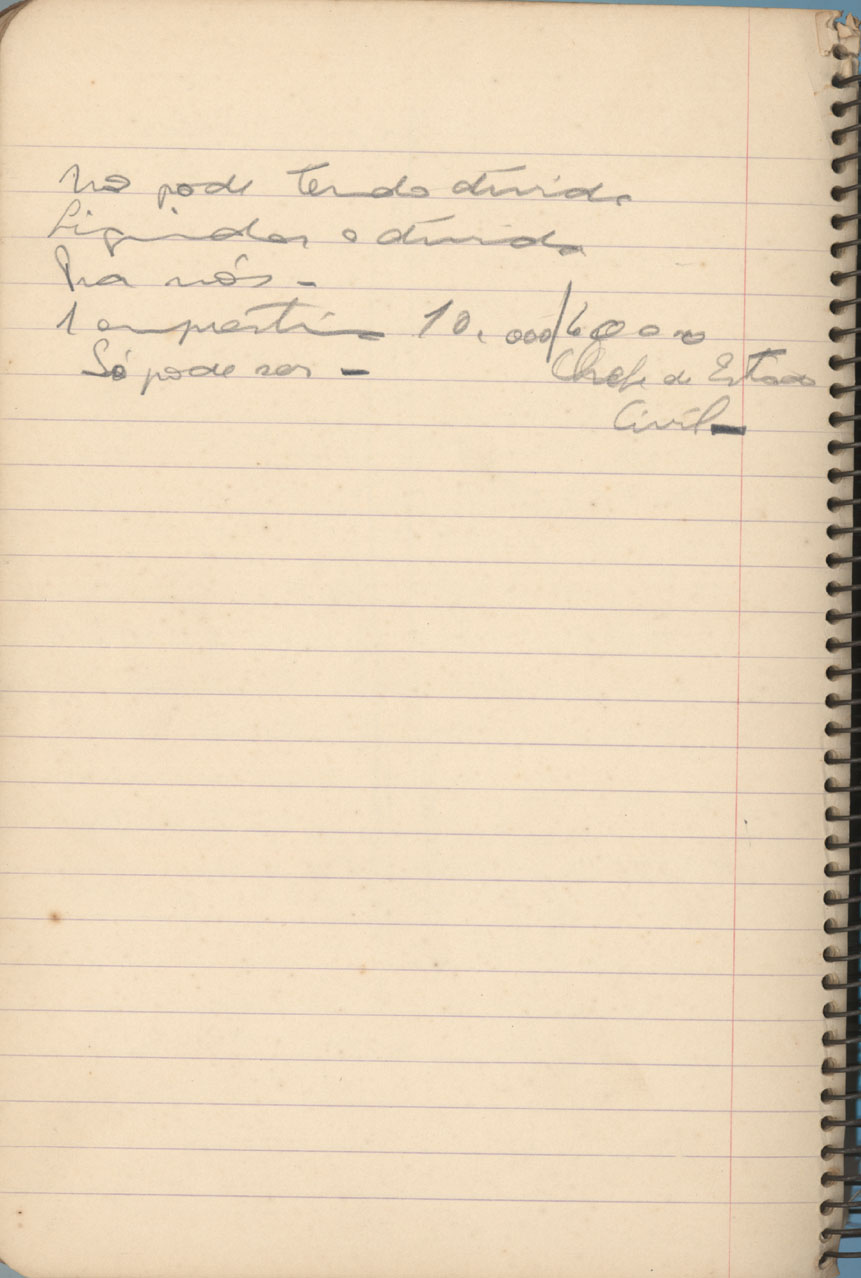 Não pode tendo dívida
Liquidar a dívida
Pra nós -
1 empréstimo 10.000/60000
Só pode ser - Chefe de Estado
Civil -